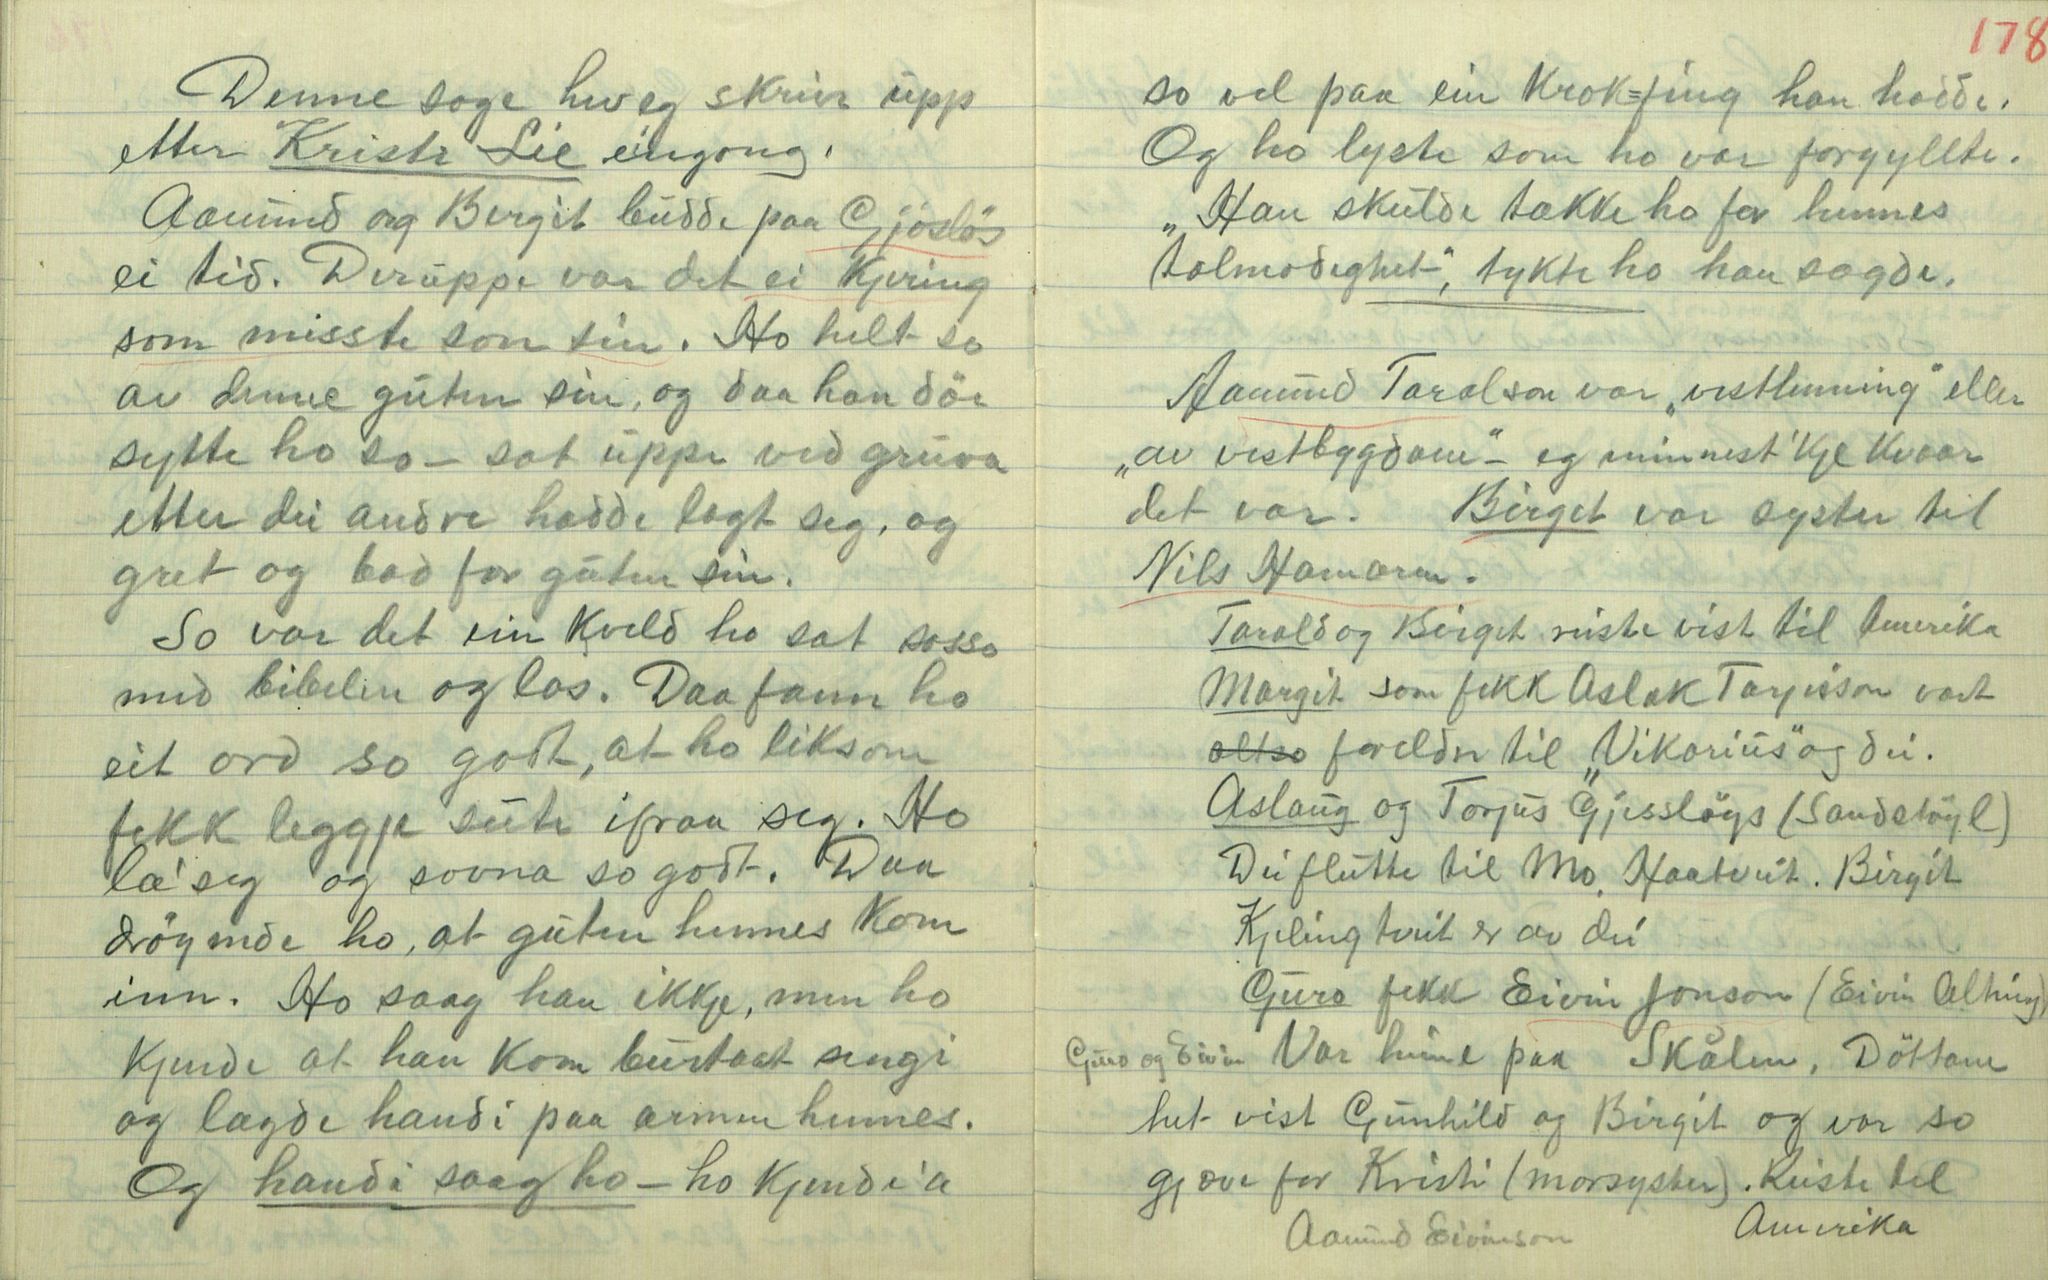 Denne soge hev eg skrive upp
etter Kristi Lie eingong.
Aamund og Bergit budde paa Gjösløs
ei tid. Deruppe var det ei Kjering
som misste son sin. Ho helt so
av denne guten sin, og daa han döe
sytte ho so – sat uppe ved gruva
etter dei andre hadde lagt seg, og
gret og bad for guten sin.
So var det ein Kveld ho sat sosso
med bibelen og las. Daa fann ho
eit ord so godt, at ho liksom
fekk leggje suti ifraa seg. Ho
la' seg og sovna so godt. Daa
dröymde ho, at guten hennes Kom
inn. Ho saag han ikkje, men ho
Kjende at han Kom burtaat sengi
og lagde handi paa armen hennes.
Og handi saag ho – ho Kjende 'a
178
so vel paa ein Krok=fing han hadde.
Og ho lyste som ho var forgyllte.
"Han skulde takke ho for hennes
tolmodeghet", tykte ho han sagde.
Aamund Taralson var "vestlenning" eller
"av vestbygdane" – eg minnest 'kje Kvaar
det var. Birget var syster til
Nils Hamaren.
Tarald og Birget reiste vist til Amerika
Margit som fekk Aslak Tarjeison vart
altso foreldre til "Vikarius" og dei.
Aslaug og Torjus Gjesslöys (Sandstöyl)
Dei flutte til Mo. Haatveit. Birgit
Kjelingtveit er av dei
Guro fekk Eivin Jonson (Eivin Alting)
Guro og Eivin Var heime paa Skålen. Döttane
het vist Gunhild og Birgit og var so
gjæve for Kristi (morsyster). Reiste til
Amerika
Aamund Eivinson